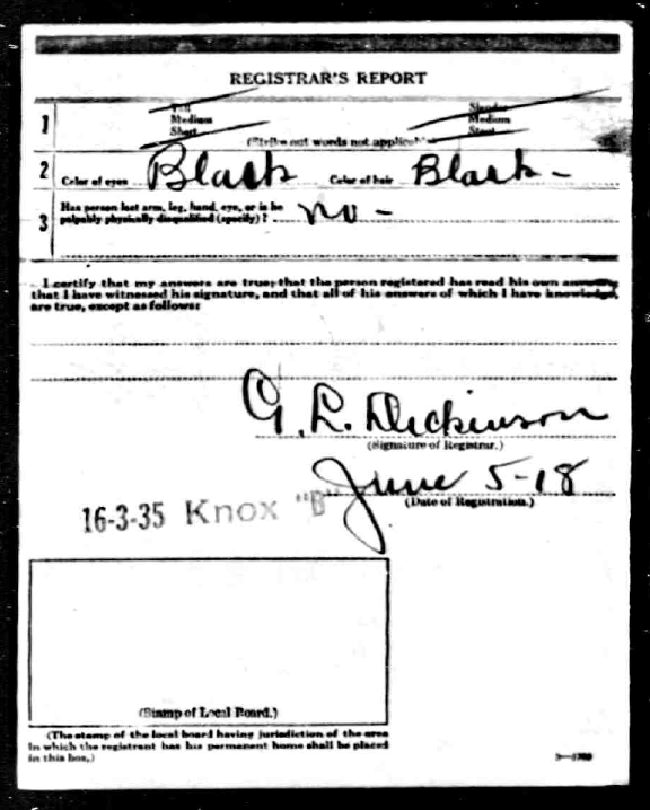 REGISTRAR'S REPORT
1 Tall Slender
Medium Medium
Short Stout
(Strike out words not applicable)
2 Color of eyes Black Color of hair Black -
3 Has person lost arm, leg, hand, eye, or is he
palpably physically disqualified (specify)? no -
I certify that my answers are true; that the person registered has read his own answers,
that I have witnessed his signature, and that all of his answers of which I have knowledge,
are true, except as follows:
G. L. Dickinson
(Signature of Registrar.)
June 5-18
(Date of Registration.)
16-3-35 Knox "B"
(Stamp of Local Board.)
(The stamp of the local board having jurisdiction of the area
in which the registrant has his permanent home shall be placed
in this box.)